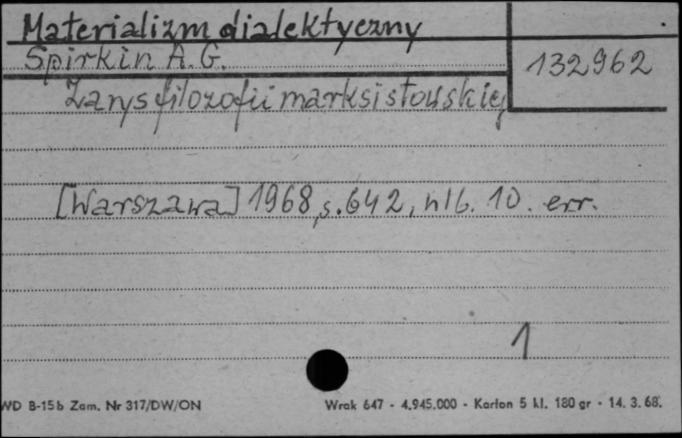 Materializm dialektyczny
Spirkin A. G.
132962
Zarys filozofii marksistowskiej
[Warszawa] 1968, s. 642, nlb. 10. err.
1
WD B-15b Zam. Nr 317/DW/ON
Wrak 647 - 4.945.000 - Karton 5 kl. 180 gr - 14. 3. 68.